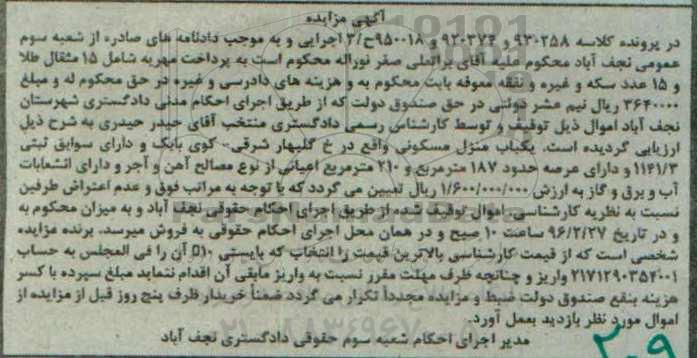 آگهی مزایده
در پرونده کلاسه ۹۳۰۲۵۸ و ۹۲۰۳۷۴ و ۹۵۰۰۱۸ح/۳ اجرایی و به موجب دادنامه های صادره از شعبه سوم
عمومی نجف آباد محکوم علیه آقای براتعلی صفر نوراله محکوم است به پرداخت مهریه شامل ۱۵ مثقال طلا
و ۱۵ عدد سکه و غیره و نفقه معوقه بابت محکوم به و هزینه های دادرسی و غیره در حق محکوم له و مبلغ
۳۶۴۰۰۰۰ ریال نیم عشر دولتی در حق صندوق دولت که از طریق اجرای احکام مدنی دادگستری شهرستان
نجف آباد اموال ذیل توقیف و توسط کارشناس رسمی دادگستری منتخب آقای حیدر حیدری به شرح ذیل
ارزیابی گردیده است. یکباب منزل مسکونی واقع در خ گلبهار شرقی- کوی بابک و دارای سوابق ثبتی
۱۱۴۱/۳ و دارای عرصه حدود ۱۸۷ مترمربع و ۲۱۰ مترمربع اعیانی از نوع مصالح آهن و آجر و دارای انشعابات
آب و برق و گاز به ارزش ۱/۶۰۰/۰۰۰/۰۰۰ ریال تعیین می گردد که با توجه به مراتب فوق و عدم اعتراض طرفین
نسبت به نظریه کارشناسی، اموال توقیف شده از طریق اجرای احکام حقوقی نجف آباد و به میزان محکوم به
و در تاریخ ۹۶/۲/۲۷ ساعت ۱۰ صبح و در همان محل اجرای احکام حقوقی به فروش میرسد. برنده مزایده
شخصی است که از قیمت کارشناسی بالاترین قیمت را انتخاب که بایستی ۱۰٪ آن را فی المجلس به حساب
۲۱۷۱۲۹۰۳۵۴۰۰۱ واریز و چنانچه ظرف مهلت مقرر نسبت به واریز مابقی آن اقدام ننماید مبلغ سپرده با کسر
هزینه بنفع صندوق دولت ضبط و مزایده مجدداً تکرار می گردد ضمناً خریدار ظرف پنج روز قبل از مزایده از
اموال مورد نظر بازدید بعمل آورد.
مدیر اجرای احکام شعبه سوم حقوقی دادگستری نجف آباد
۲۰۹